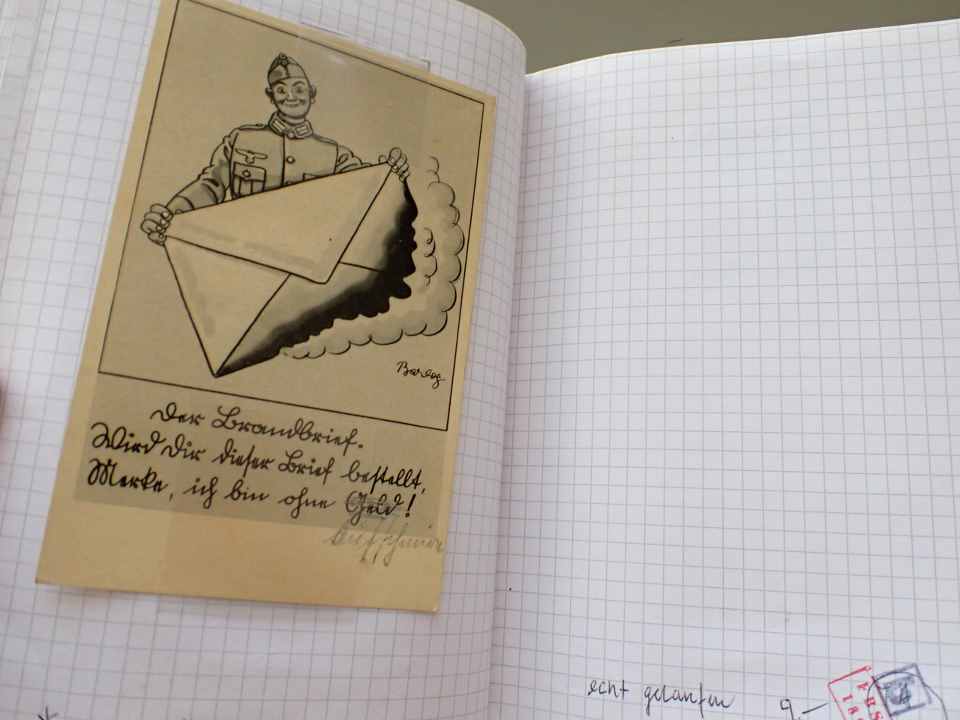 Barlog
Der Brandbrief.
Wird Dir dieser Brief bestellt,
Merke, ich bin ohne Geld!
echt gelaufen 9,-